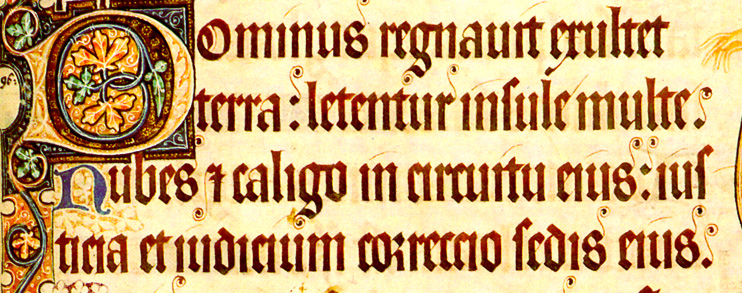 96:
Dominus regnauit exultet
terra: letentur insule multe.
Nubes ⁊ caligo in circuitu eius: ius
ticia et iudicium correccio sedis eius.